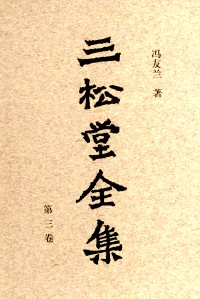 冯友兰 著
三松堂全集
第三卷